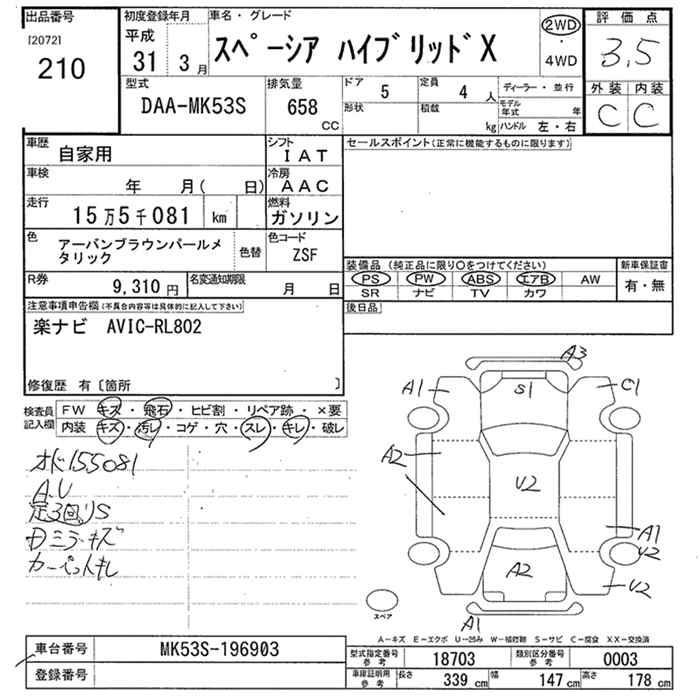 出品番号
[2072]
210
初度登録年月
平成
31 3月
車名・グレード
スペーシア ハイブリッドX
2WD
・
4WD
評価点
3.5
外装 内装
C C
型式
DAA-MK53S
排気量
658
CC
ドア
5
定員
4 人
ディーラー・並行
形状
積載
kg
モデル年式 年
ハンドル 左・右
車歴
自家用
シフト
IAT
セールスポイント(正常に機能するものに限ります)
車検
年 月( 日)
冷房
AAC
走行
15万5千081 km
燃料
ガソリン
色
アーバンブラウンパールメタリック
色替
色コード
ZSF
装備品 (純正品に限り〇をつけてください)
新車保証書
PS PW ABS エアB AW
SR ナビ TV カワ
有・無
R券
9,310 円
名変通知期限
月 日
後日品
注意事項申告欄(不具合内容等は具体的に記入して下さい)
楽ナビ AVIC-RL802
修復歴 有〔箇所 〕
検査員記入欄
FW キズ・飛石・ヒビ割・リペア跡・×要
内装 キズ・汚レ・コゲ・穴・スレ・キレ・破レ
オド155081
A,U
Dミラーキズ
カーペットキレ
A3
A1
S1
C1
A2
U2
A1
U2
A2
U2
A1
スペア
A－キズ E－エクボ U－凹み W－補修跡 S－サビ C－腐食 XX－交換済
車台番号
MK53S-196903
登録番号
型式指定番号参考
18703
類別区分番号参考
0003
車庫証明用参考
長さ 339 cm
幅 147 cm
高さ 178 cm